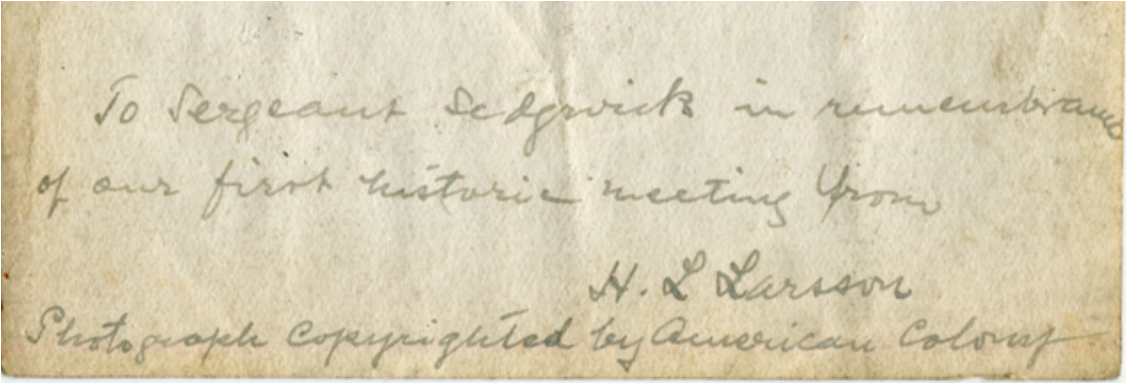 To Sergeant Sedgwick in remembrance
of our first historic meeting from
H. L Larsson
Photograph copyrighted by American Colony